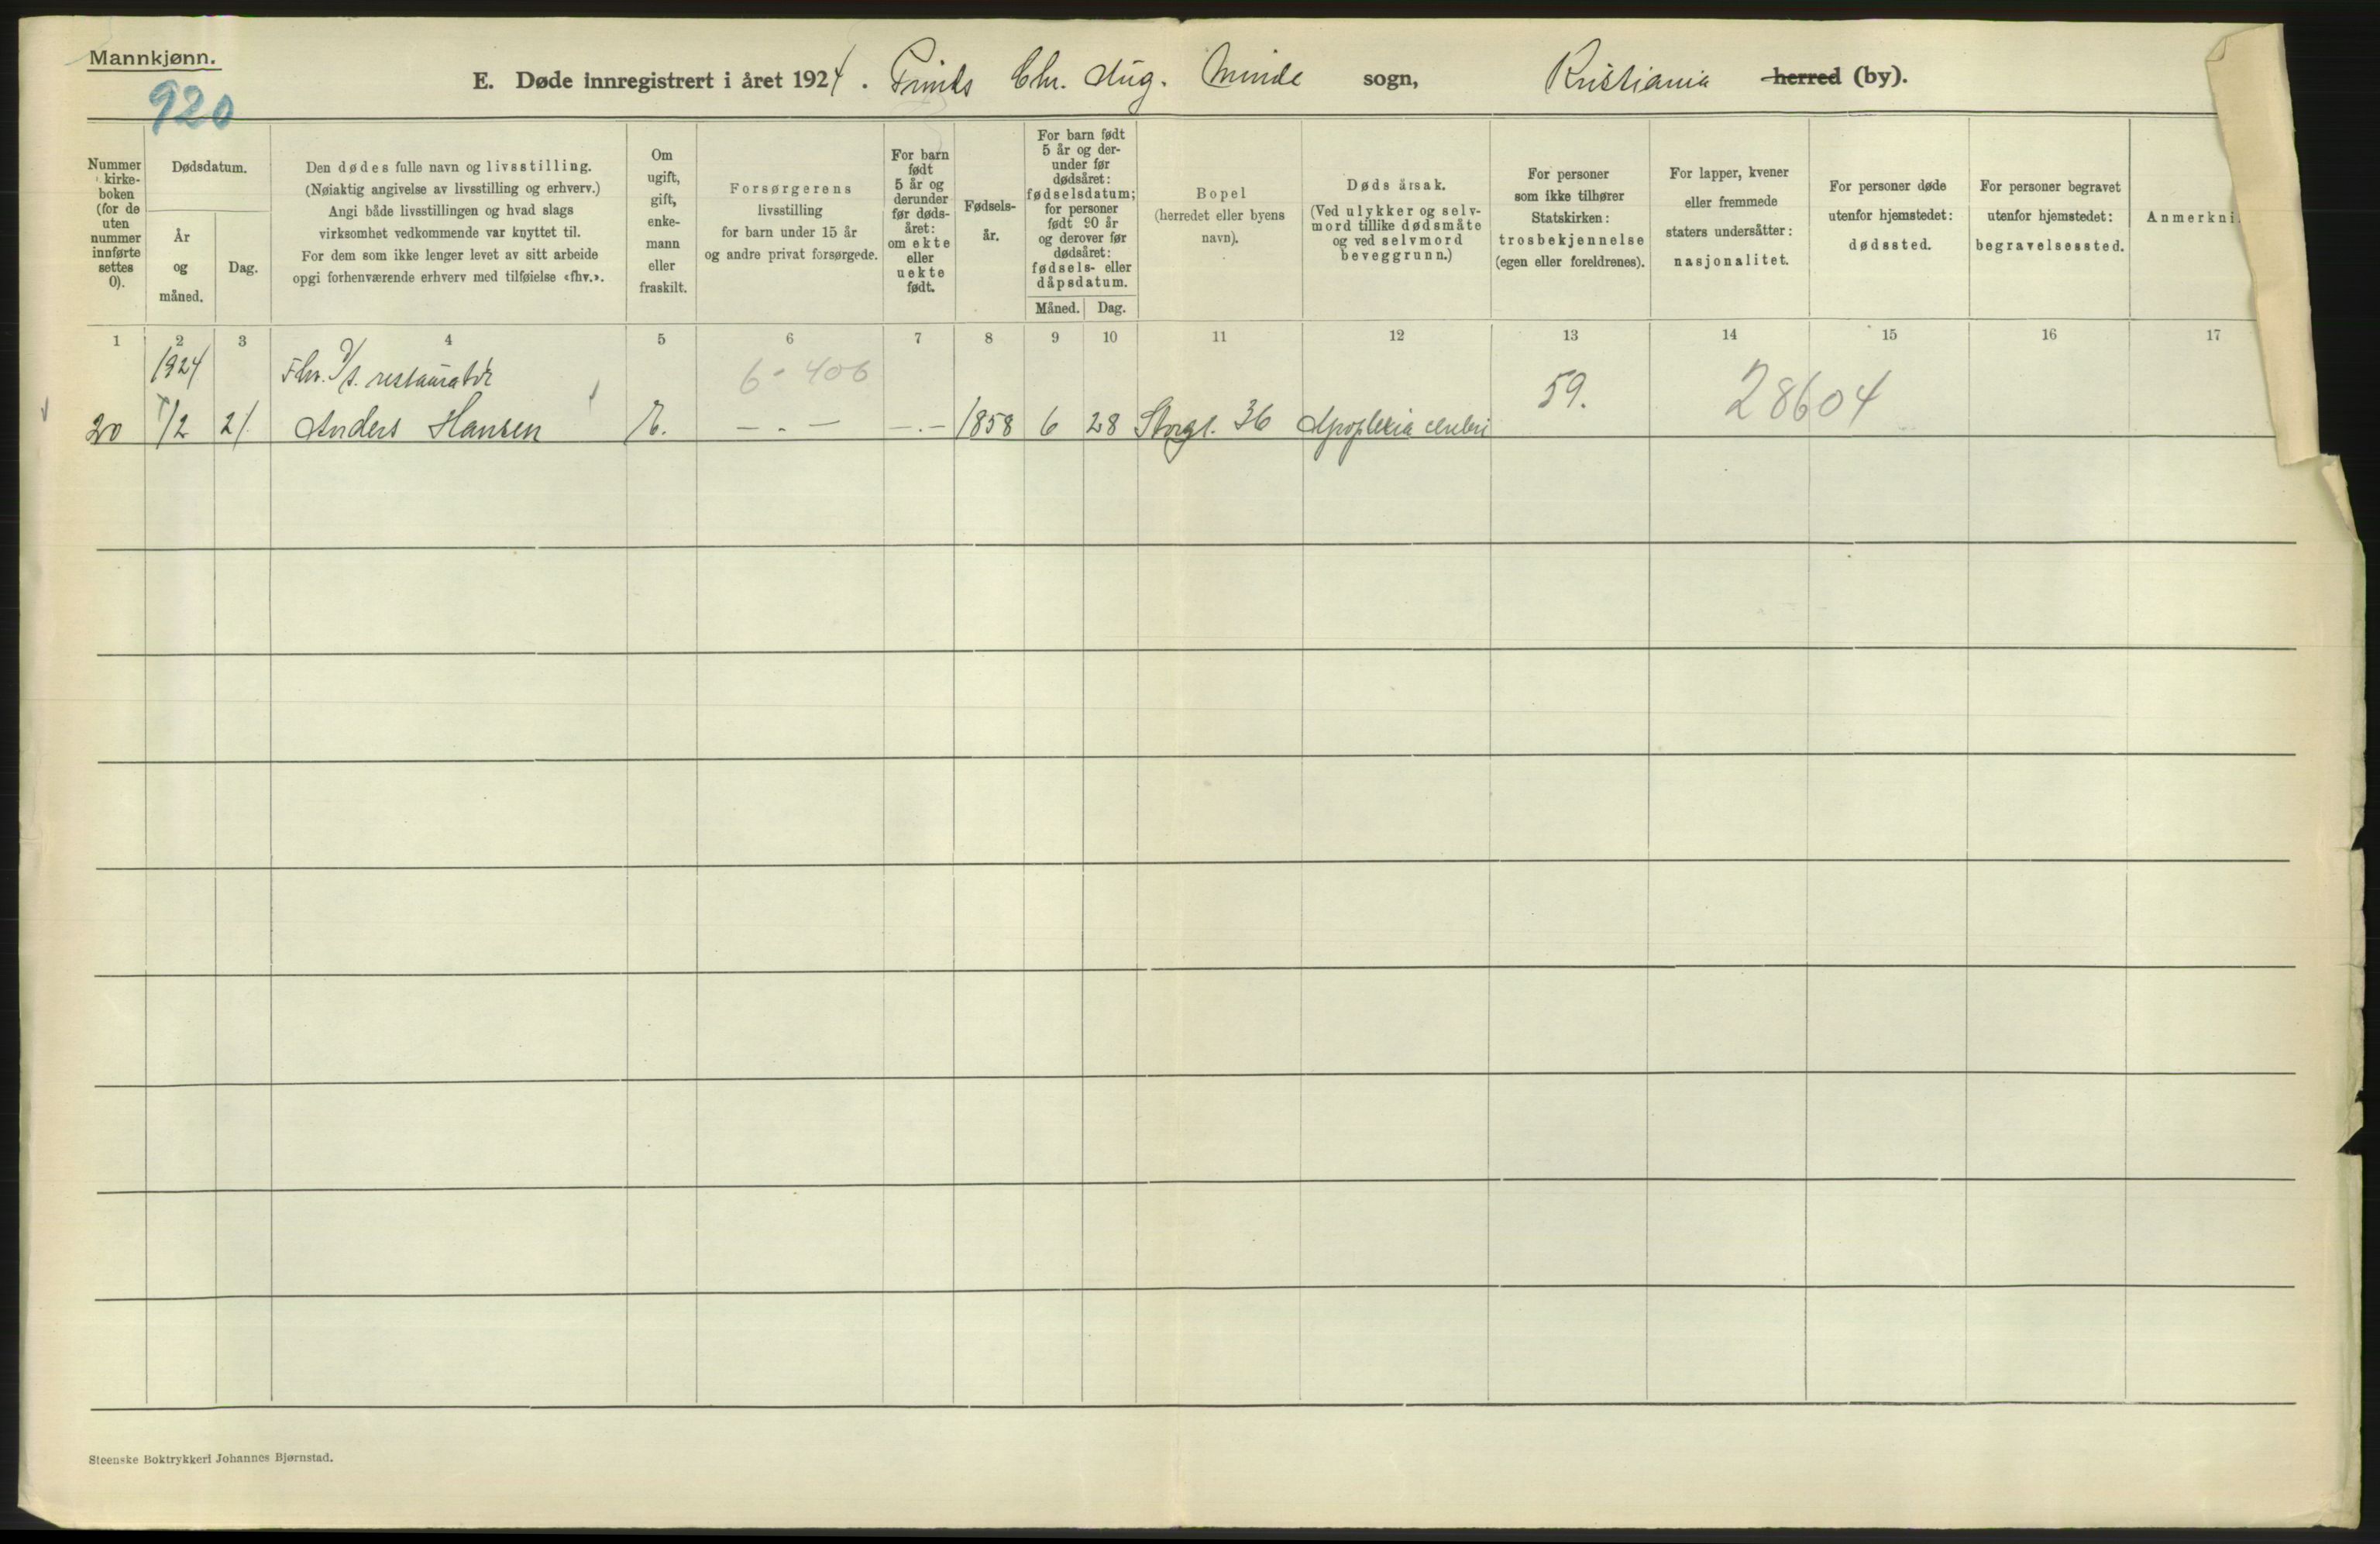 Mannkjønn.
920
E. Døde innregistrert i året 1924. Prinds Chr. Aug. Minde sogn, Kristiania herred (by).
Nummer
kirke-
boken
(for de
uten
nummer
innførte
settes
0).
Dødsdatum.
År
og
måned.
Dag.
Den dødes fulle navn og livsstilling.
(Nøiaktig angivelse av livsstilling og erhverv.)
Angi både livsstillingen og hvad slags
virksomhet vedkommende var knyttet til.
For dem som ikke lenger levet av sitt arbeide
opgi forhenværende erhverv med tilføielse «fhv.».
Om
ugift,
gift,
enke-
mann
eller
fraskilt.
Forsørgerens
livsstilling
for barn under 15 år
og andre privat forsørgede.
For barn
født
5 år og
derunder
før døds-
året:
om ekte
eller
uekte
født.
Fødsels-
år.
For barn født
5 år og der-
under før
dødsåret:
fødselsdatum;
for personer
født 90 år
og derover før
dødsåret:
fødsels- eller
dåpsdatum.
Måned. Dag.
Bopel
(herredet eller byens
navn).
Dødsårsak.
(Ved ulykker og selv-
mord tillike dødsmåte
og ved selvmord
beveggrunn.)
For personer
som ikke tilhører
Statskirken:
trosbekjennelse
(egen eller foreldrenes).
For lapper, kvener
eller fremmede
staters undersåtter:
nasjonalitet.
For personer døde
utenfor hjemstedet:
dødssted.
For personer begravet
utenfor hjemstedet:
begravelsessted.
Anmerkni
1 2 3 4 5 6 7 8 9 10 11 12 13 14 15 16 17
1924 Fhv. restauratør 6-406 59. 28604
20 /2 21. Anders Hansen E. — - — — . — 1858 6 28 Storgt. 36 Apoplexia cerebri
Steenske Boktrykkeri Johannes Bjørnstad.